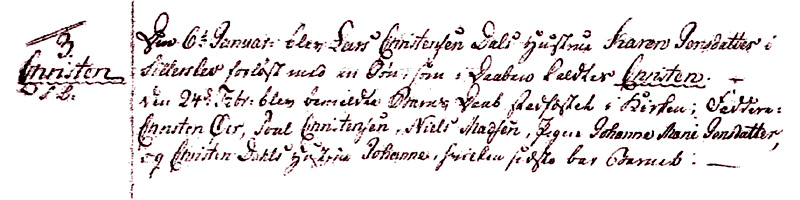 3.
Christen
Den 6t Januar: blev Lars Christensen Dals Hustrue Karen Jensdatter i
Sillerslev forløst med en Søn, som i Daaben kaldtes Christen. —
den 24de Febr: blev bemeldte Barns Daab stadfæstet i Kirken; Faddere:
Christen Ær, Poul Christensen, Niels Madsen, Pigen Johanne Marie Jensdatter,
og Christen Dahls Hustrue Johanne, hvilken sidste bar Barnet. —